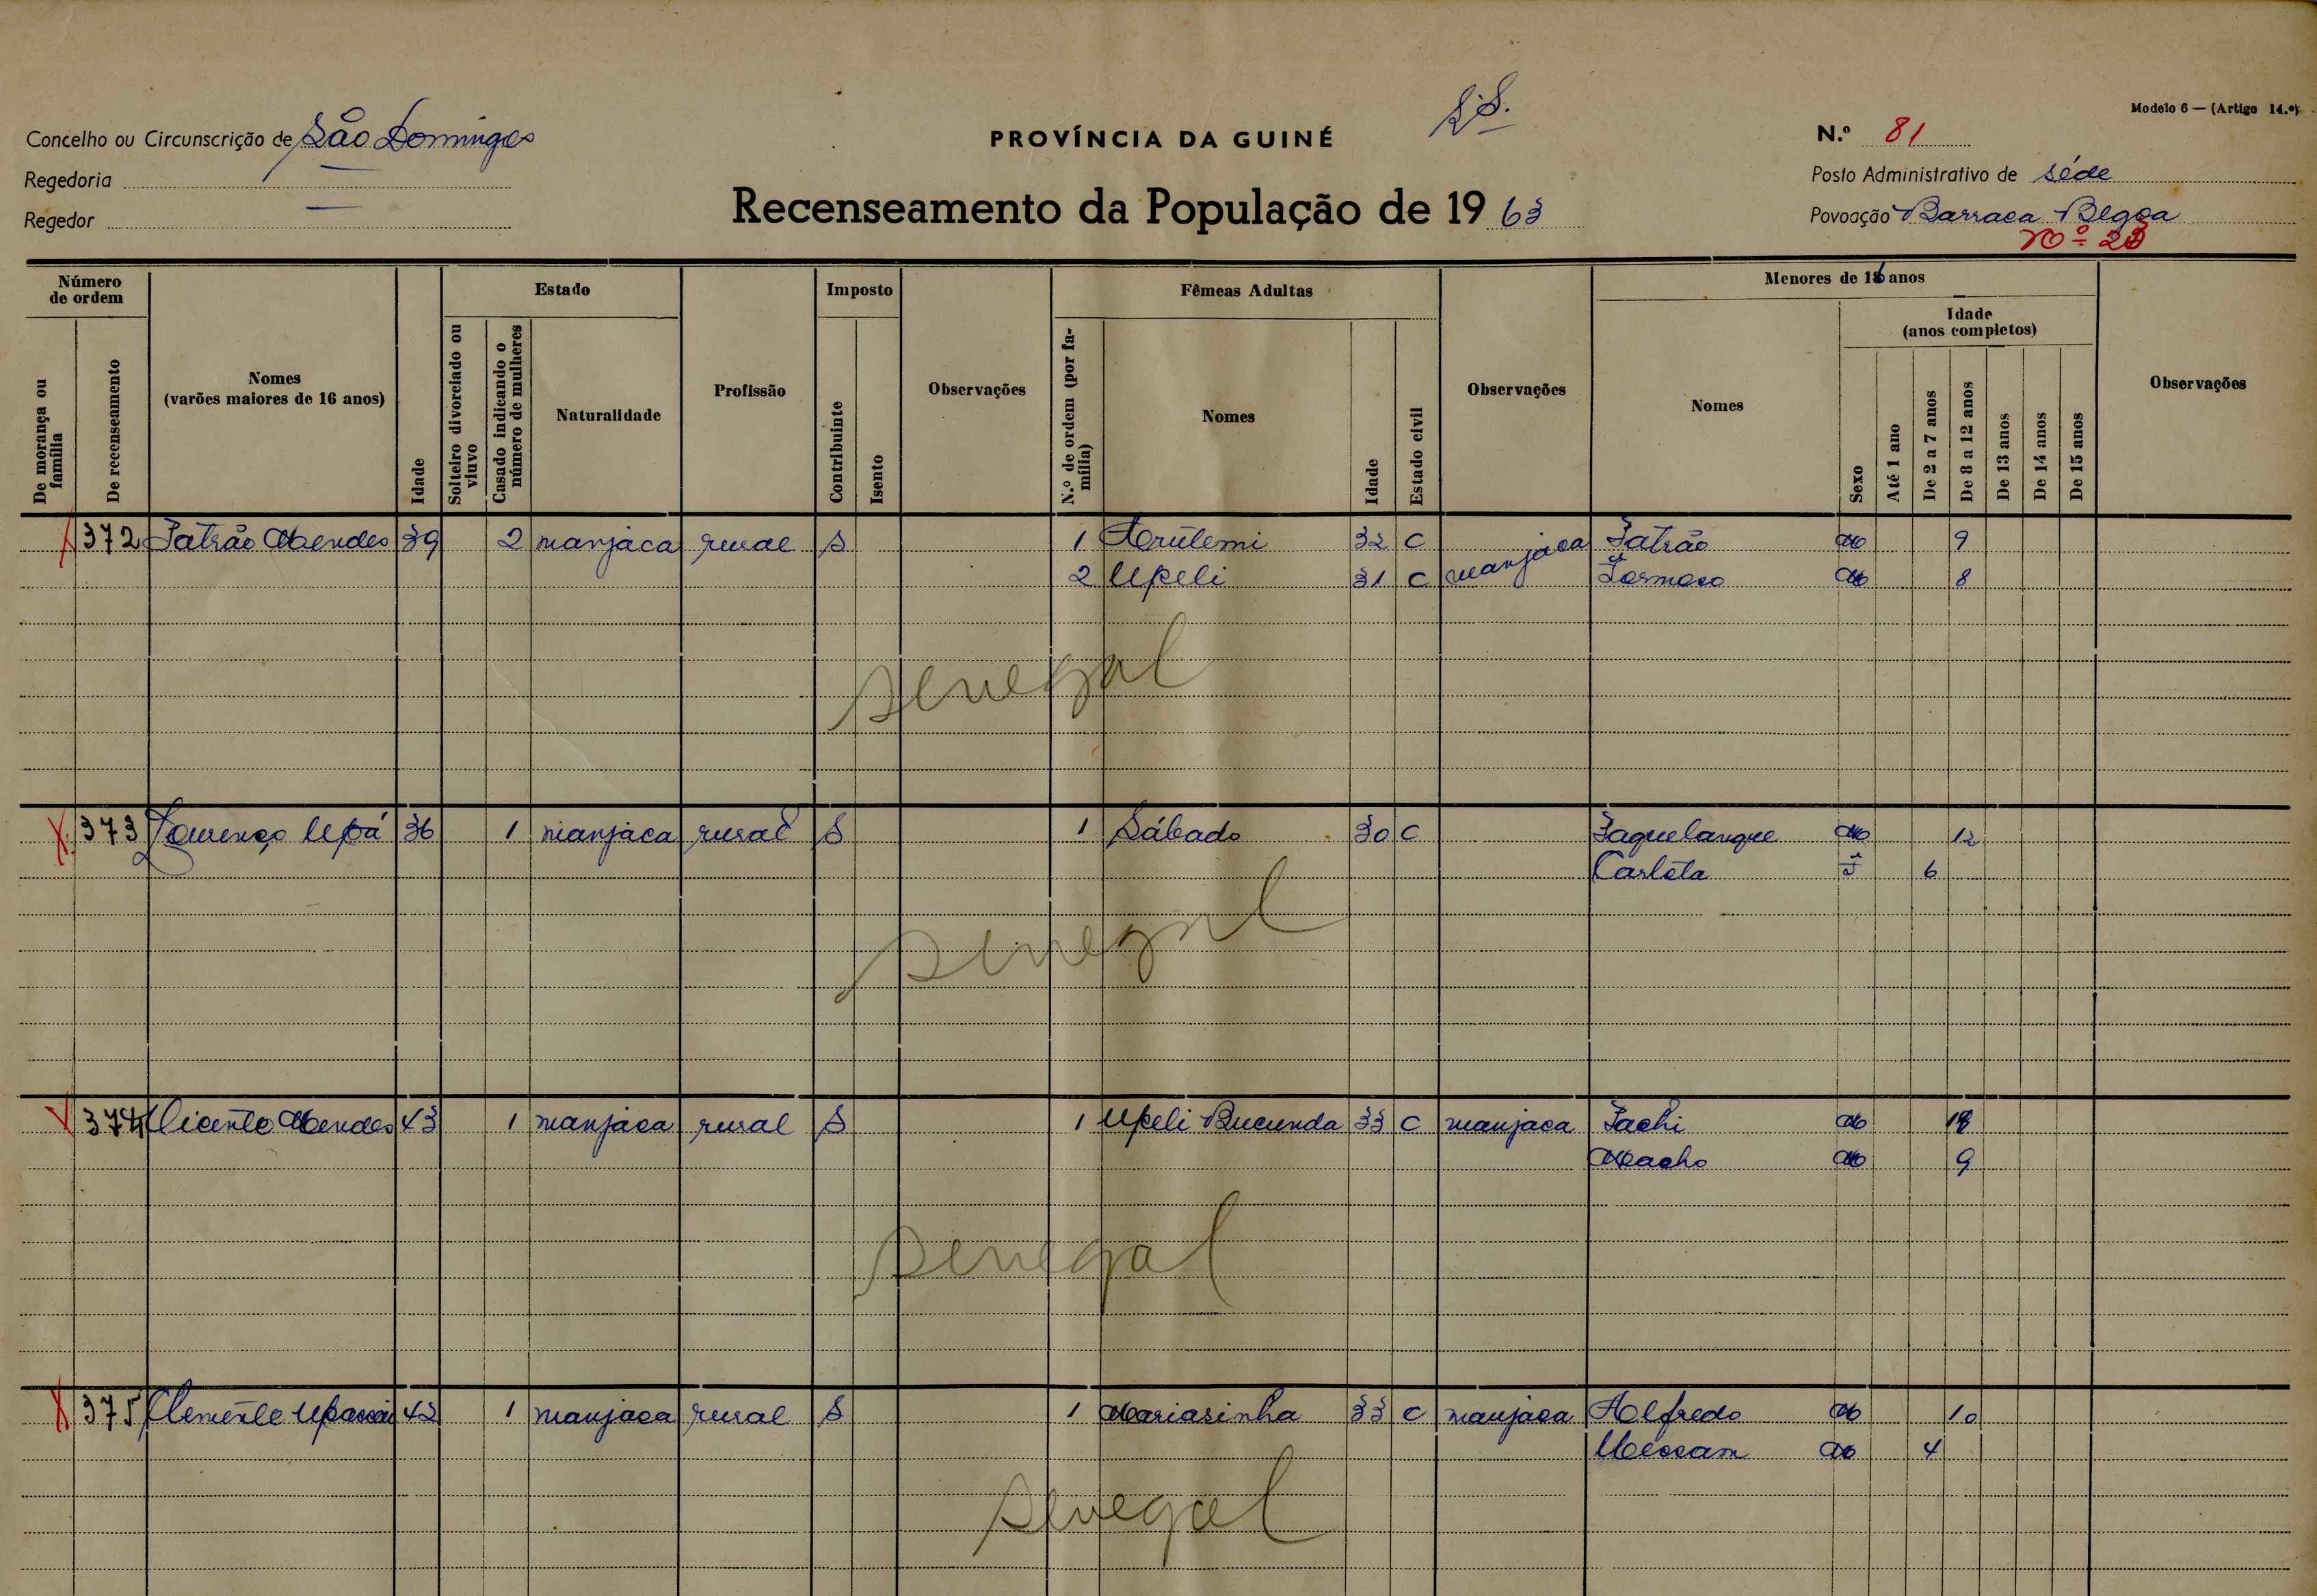 Modelo 6 — (Artigo 14.º)
Concelho ou Circunscrição de São Domingos
PROVÍNCIA DA GUINÉ
N.º 81
Regedoria —
Posto Administrativo de Séde
Regedor —
Recenseamento da População de 1963
Povoação Barraca
Nº 23
Número de ordem
De morança ou família
De recenseamento
Nomes
(varões maiores de 16 anos)
Idade
Estado
Solteiro divorciado ou viuvo
Casado indicando o número de mulheres
Naturalidade
Profissão
Imposto
Contribuinte
Isento
Observações
Fêmeas Adultas
N.º de ordem (por família)
Nomes
Idade
Estado civil
Observações
Menores de 16 anos
Nomes
Sexo
Idade
(anos completos)
Até 1 ano
De 2 a 7 anos
De 8 a 12 anos
De 13 anos
De 14 anos
De 15 anos
Observações
372 Mendes 39 2 manjaca rural S 1 32 C manjaca M 9
2 Upeli 31 C M 8
senegal
373 Lourenço Upá 36 1 manjaca rural S 1 Sábado 30 C M 12
Carlota F 6
senegal
374 Vicente Mendes 43 1 manjaca rural S 1 Upeli Bucunda 33 C manjaca M
Macho M 9
senegal
375 Clemente 42 1 manjaca rural S 1 Mariasinha 33 C manjaca Alfredo M 10
M 4
senegal